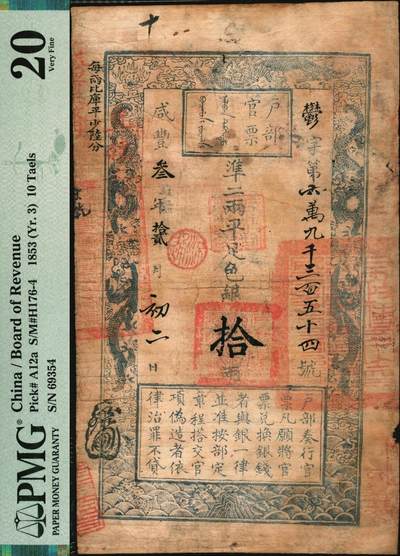 PMG®
PAPER MONEY GUARANTY
China / Board of Revenue
Pick# A12a S/M#H176-4 1853 (Yr. 3) 10 Taels
S/N 69354
20
Very Fine
每兩比庫平少陸分
戶部
官票
鬱字第六萬九千三百五十四號
準二兩平足色銀
拾
兩
咸豐叁年拾貳月初二日
戶部奏行官
票凡願將官
票兌換銀錢
者與銀一律
並准按部定
章程搭交官
項偽造者依
律治罪不貸